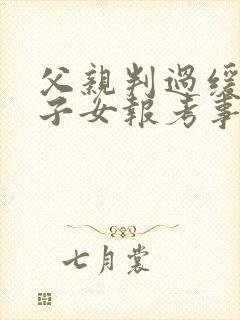 父親判過緩
子女報考事
七月裳